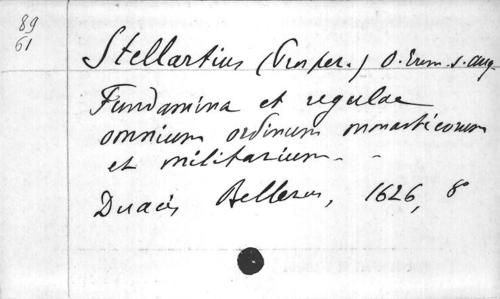 89
61
Stellartius (Prosper.) O. Erem. s. Aug.
Fundamina et regulae
omnium ordinum monasticorum
et militarium.
Duaci Bellerus, 1626, 8°